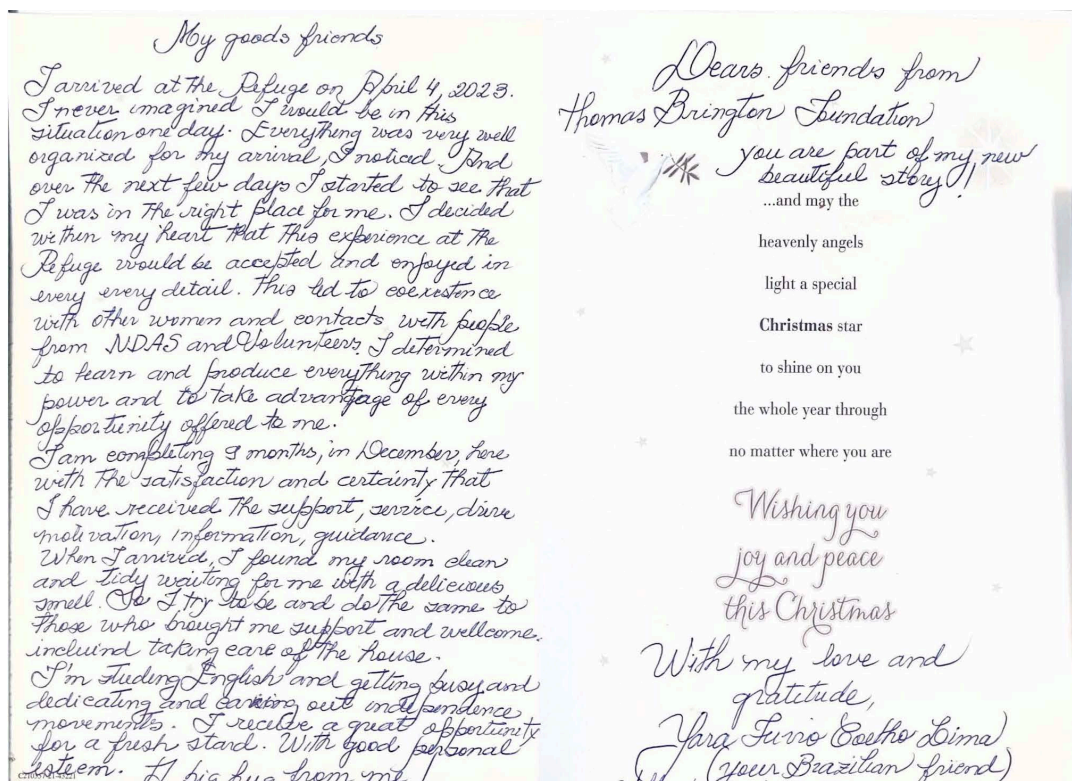 My goods friends
I arrived at the Refuge on April 4, 2023.
I never imagined I would be in this
situation one day. Everything was very well
organized for my arrival, I noticed. And
over the next few days I started to see that
I was in the right place for me. I decided
within my heart that this experience at the
Refuge would be accepted and enjoyed in
every every detail. This led to coexistence
with other women and contacts with people
from NDAS and Volunteers. I determined
to learn and produce everything within my
power and to take advantage of every
opportunity offered to me.
I am completing 9 months, in December, here
with the satisfaction and certainty that
I have received the support, service, drive
motivation, information, guidance.
When I arrived, I found my room clean
and tidy waiting for me with a delicious
smell. So I try to be and do the same to
those who brought me support and wellcome.
incluind taking care of the house.
I'm studing English and getting busy and
dedicating and carring out independence
movements. I receive a great opportunity
for a fresh stard. With good personal
esteem. A big hug from me
Dears friends from
Thomas Brington Foundation
you are part of my new
beautiful story!
...and may the
heavenly angels
light a special
Christmas star
to shine on you
the whole year through
no matter where you are
Wishing you
joy and peace
this Christmas
With my love and
gratitude,
Yara Coetho Lima
(your Brazilian friend)